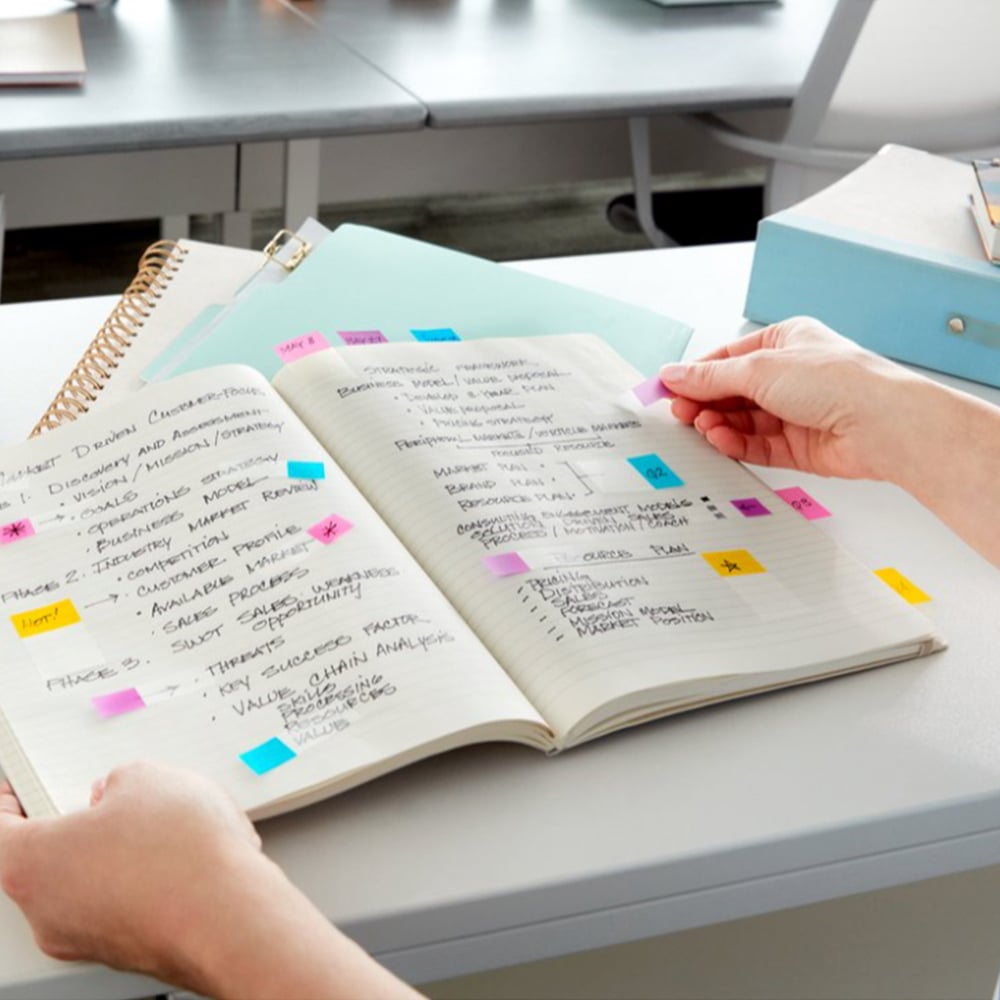 MARKET DRIVEN CUSTOMER-FOCUS
1. DISCOVERY AND ASSESSMENT
• VISION/MISSION/STRATEGY
• GOALS
• OPERATIONS STRATEGY
• BUSINESS MODEL
PHASE 2. INDUSTRY MARKET REVIEW
• COMPETITION
• CUSTOMER PROFILE
• AVAILABLE MARKET
• SALES PROCESS
SWOT SALES WEAKNESS
OPPORTUNITY
PHASE 3.
• THREATS
• KEY SUCCESS FACTOR
• VALUE CHAIN ANALYSIS
SKILLS
PROCESSING
RESOURCES
VALUE
*
HOT!
*
MAY 8
STRATEGIC FRAMEWORK
BUSINESS MODEL/VALUE PROPOSAL
• DEVELOP 3-YEAR PLAN
• VALUE PROPOSAL
• PRICING STRATEGY
PERIPHERAL MARKETS/VERTICLE MARKETS
FOCUSED RESOURCE
MARKET PLAN •
BRAND PLAN •
RESOURCE PLAN •
Q2
CONSULTING ENGAGEMENT MODELS
SOLUTION DRIVEN SALES
PROCESS/MOTIVATION/COACH
Q3
RESOURCE PLAN
PRICING
DISTRIBUTION
SALES
FORECAST
MISSION MODEL
MARKET POSITION